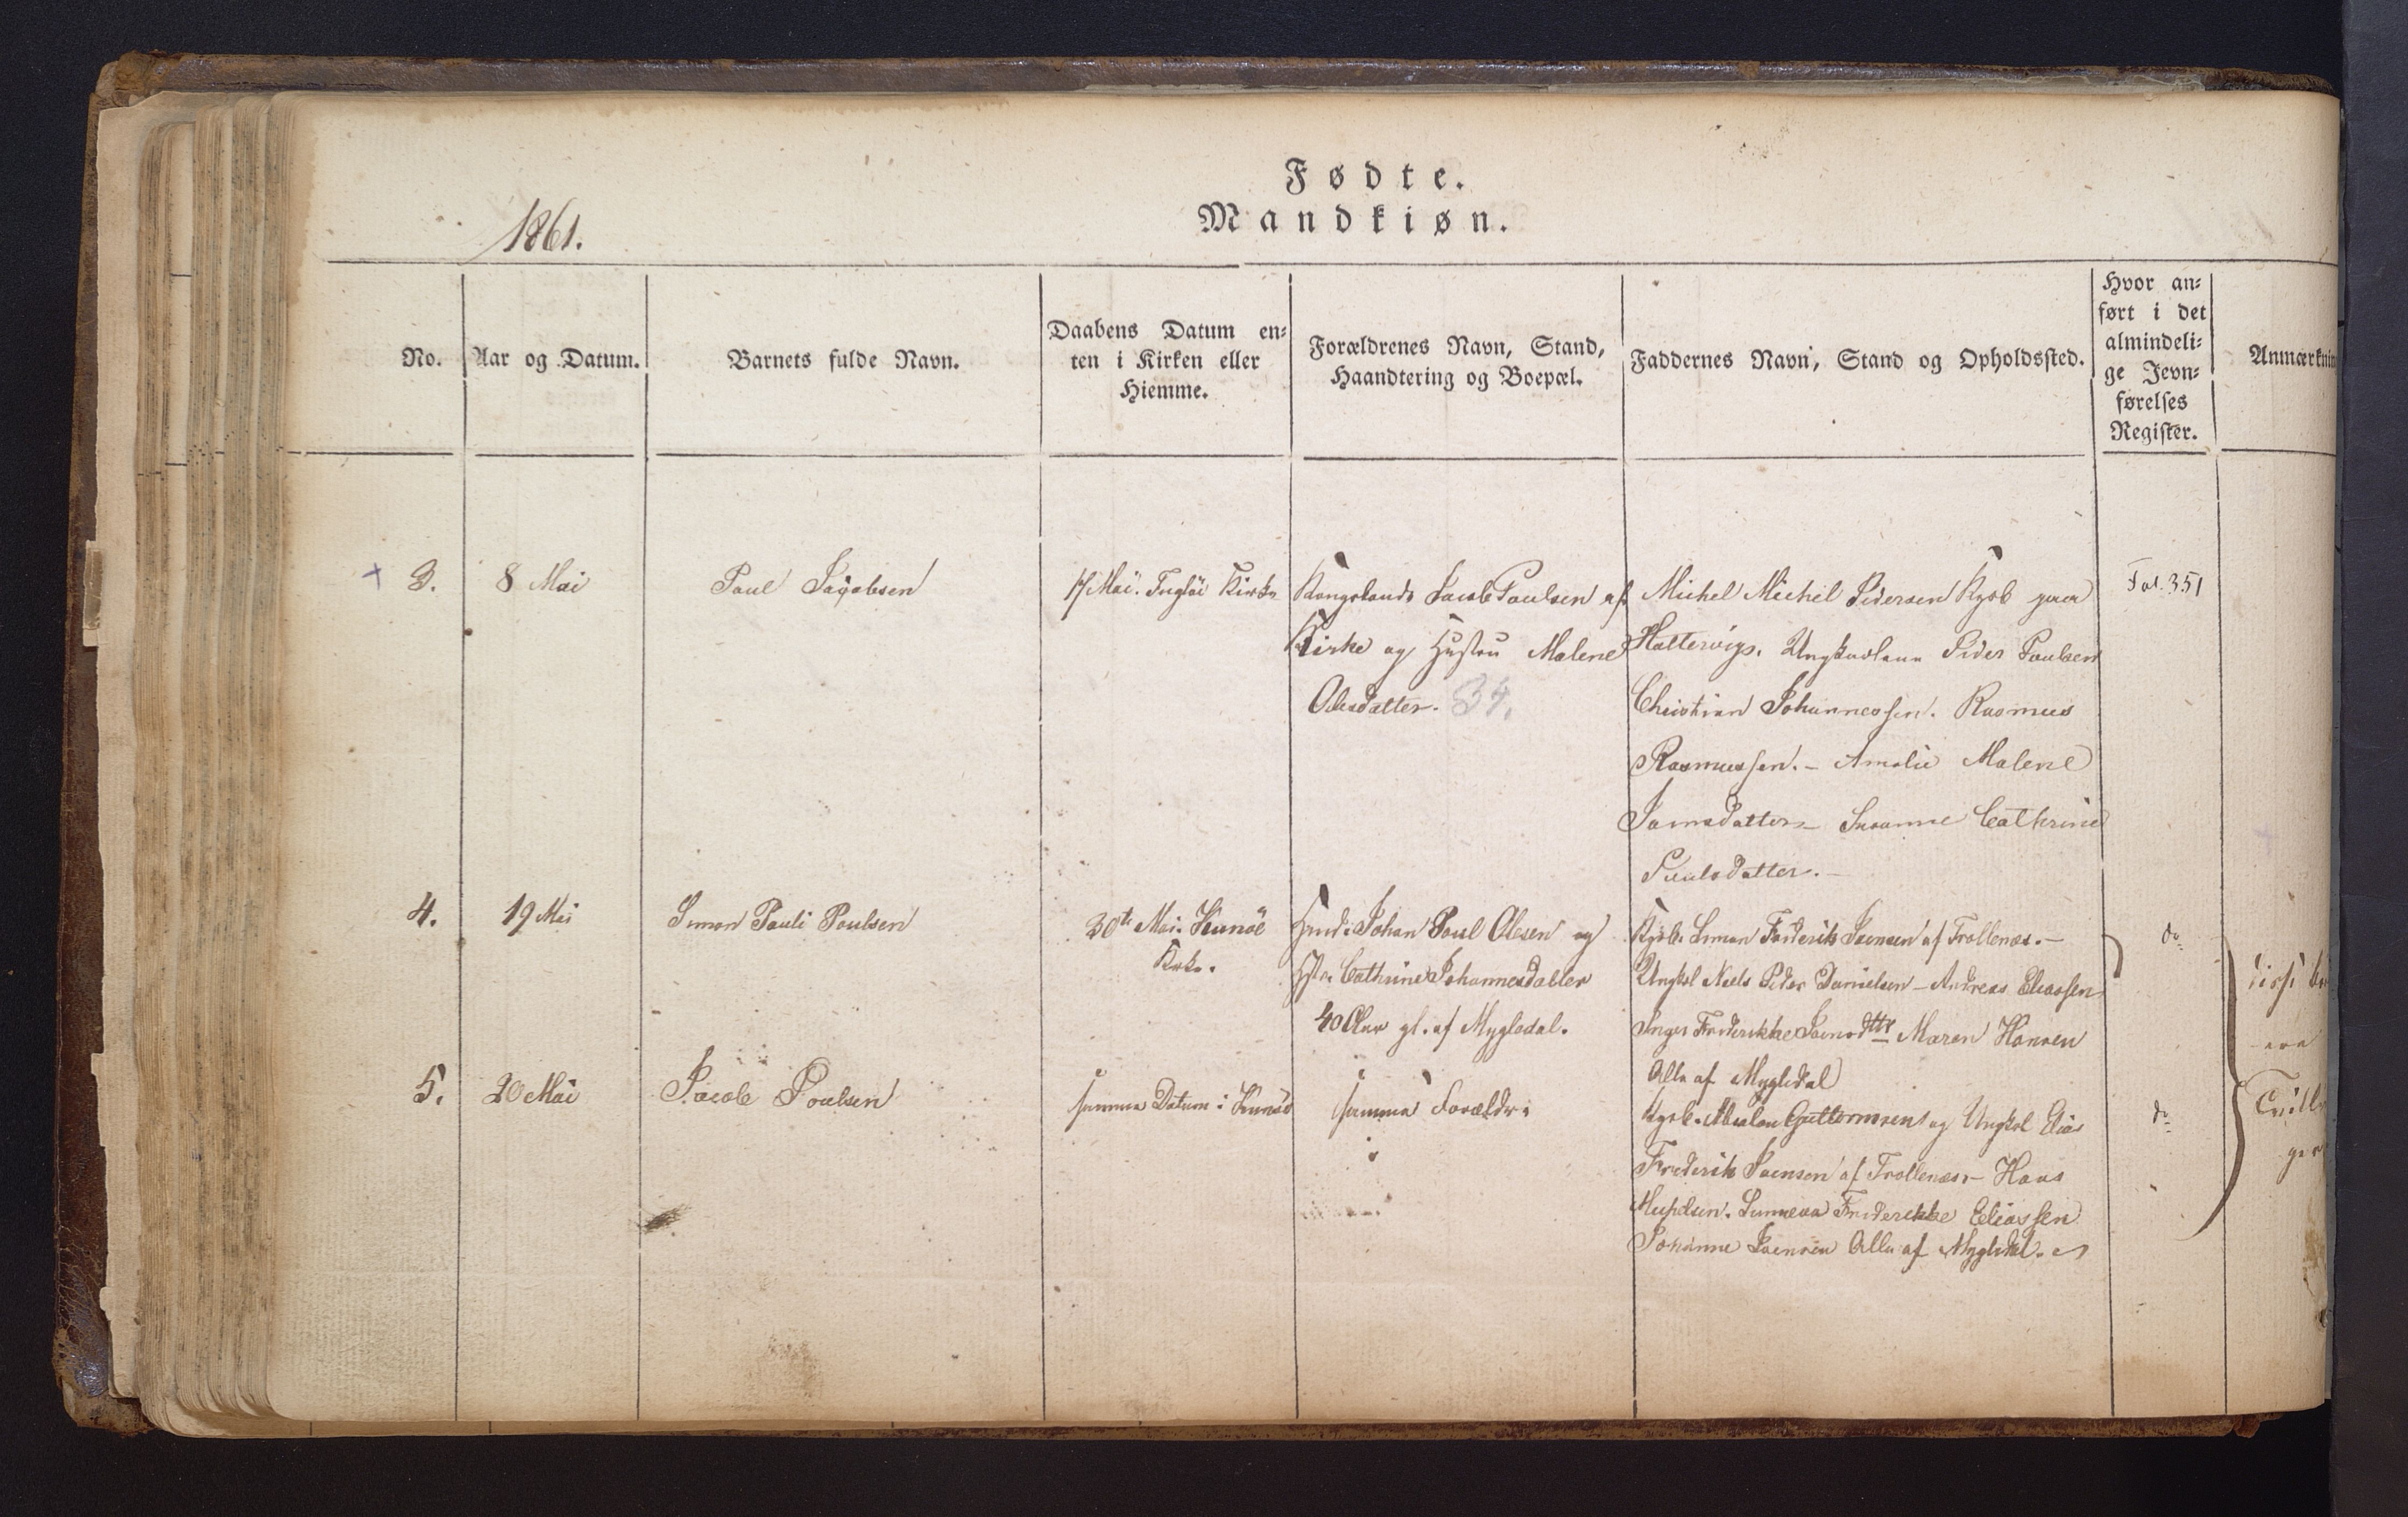 Fødte.
Mandkiøn.
1861.
No.
Aar og Datum.
Barnets fulde Navn.
Daabens Datum en=
ten i Kirken eller
Hiemme.
Forældrenes Navn, Stand,
Haandtering og Boepæl.
Faddernes Navn, Stand og Opholdssted.
Hvor an=
ført i det
almindeli=
ge Jevn=
førelses
Register.
Anmærknin
+ 3.
8 Mai
Paul Jacobsen
17 Mai. Fuglöe Kirke
Kongsbonde Jacob Poulsen af
Kirke og Hustru Malene
Olesdatter. 34.
Michel Michel Pedersen Kgsb paa
Hattervig. Ungkarlene Peder Poulsen
Christian Johannessen. Rasmus
Rasmussen. - Amalie Malene
Joensdatter - Susanne Cathrine
Poulsdatter. -
Fol. 351
4.
19 Mai
Simon Pauli Poulsen
30te Mai. Kunöe
Kirke.
Johan Poul Olesen og
Hstr. Cathrine Johannesdatter
40 Aar gl. af Mygledal.
Kgsb. Simon Frederik Joensen af Trollenæs. -
Ungkl Niels Peder Danielsen - Andreas Eliassen
Inger Frederikke Joensdttr Maren Hansen
Alle af Mygledal
do
5.
20 Mai
Jacob Poulsen
samme Datum i Kunöe
samme Forældre
Kgsb. Absalon Guttormsen og Ungkl Elias
Frederik Joensen af Trollenæs - Hans
Sunneva Frederikke Eliassen
Johanne Joensen Alle af Mygledal.
do
disse
ere
Tvill
ger